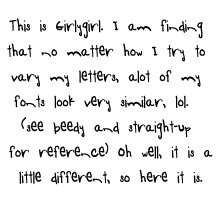 This is Girlygirl. I am finding
that no matter how I try to
vary my letters, alot of my
fonts look very similar, lol.
(see beedy and straight-up
for reference) Oh well, it is a
little different, so here it is.